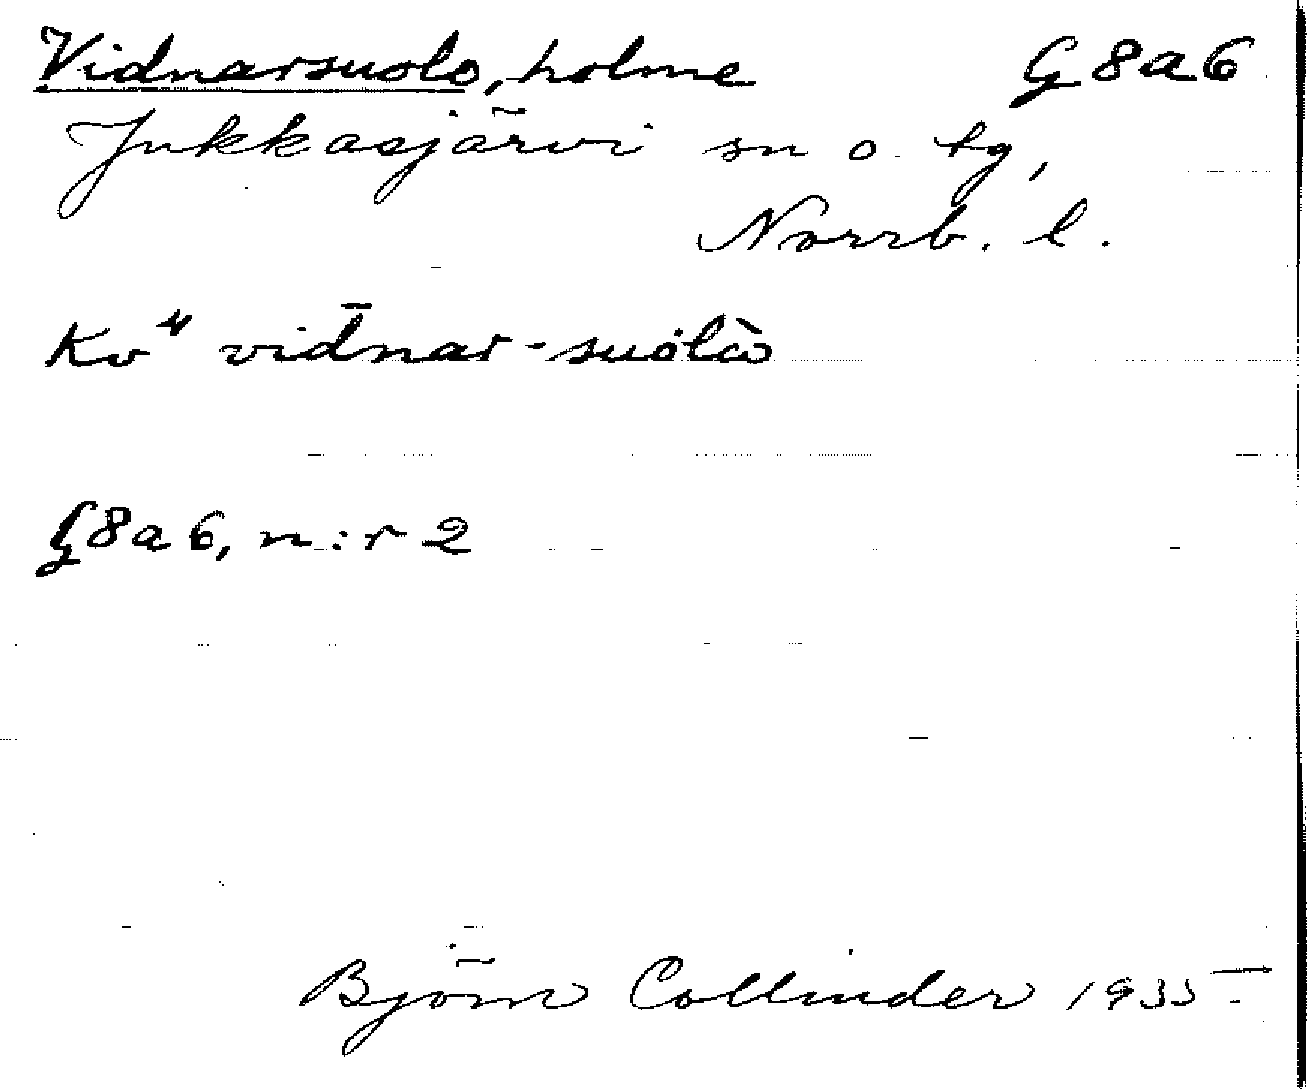 Vidnarsuolo, holme G8a6
Jukkasjärvi sn o. tg,
Norrb. l.
Kv⁴ vidnar-suolo
G8a6, n:r 2
Björn Collinder 1935